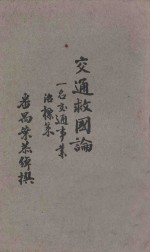 交通救國論
一名交通事業
治標策
番禺葉恭綽撰